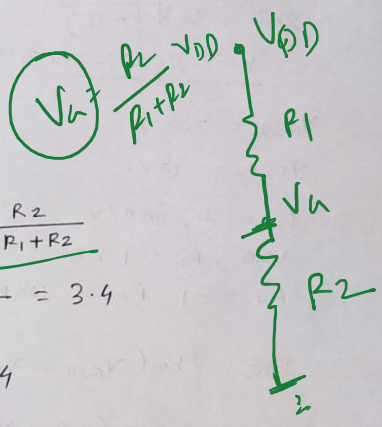 Va = R2 / R1+R2 VDD
VDD
R1
Va
R2 / R1+R2
R2
= 3.4
4